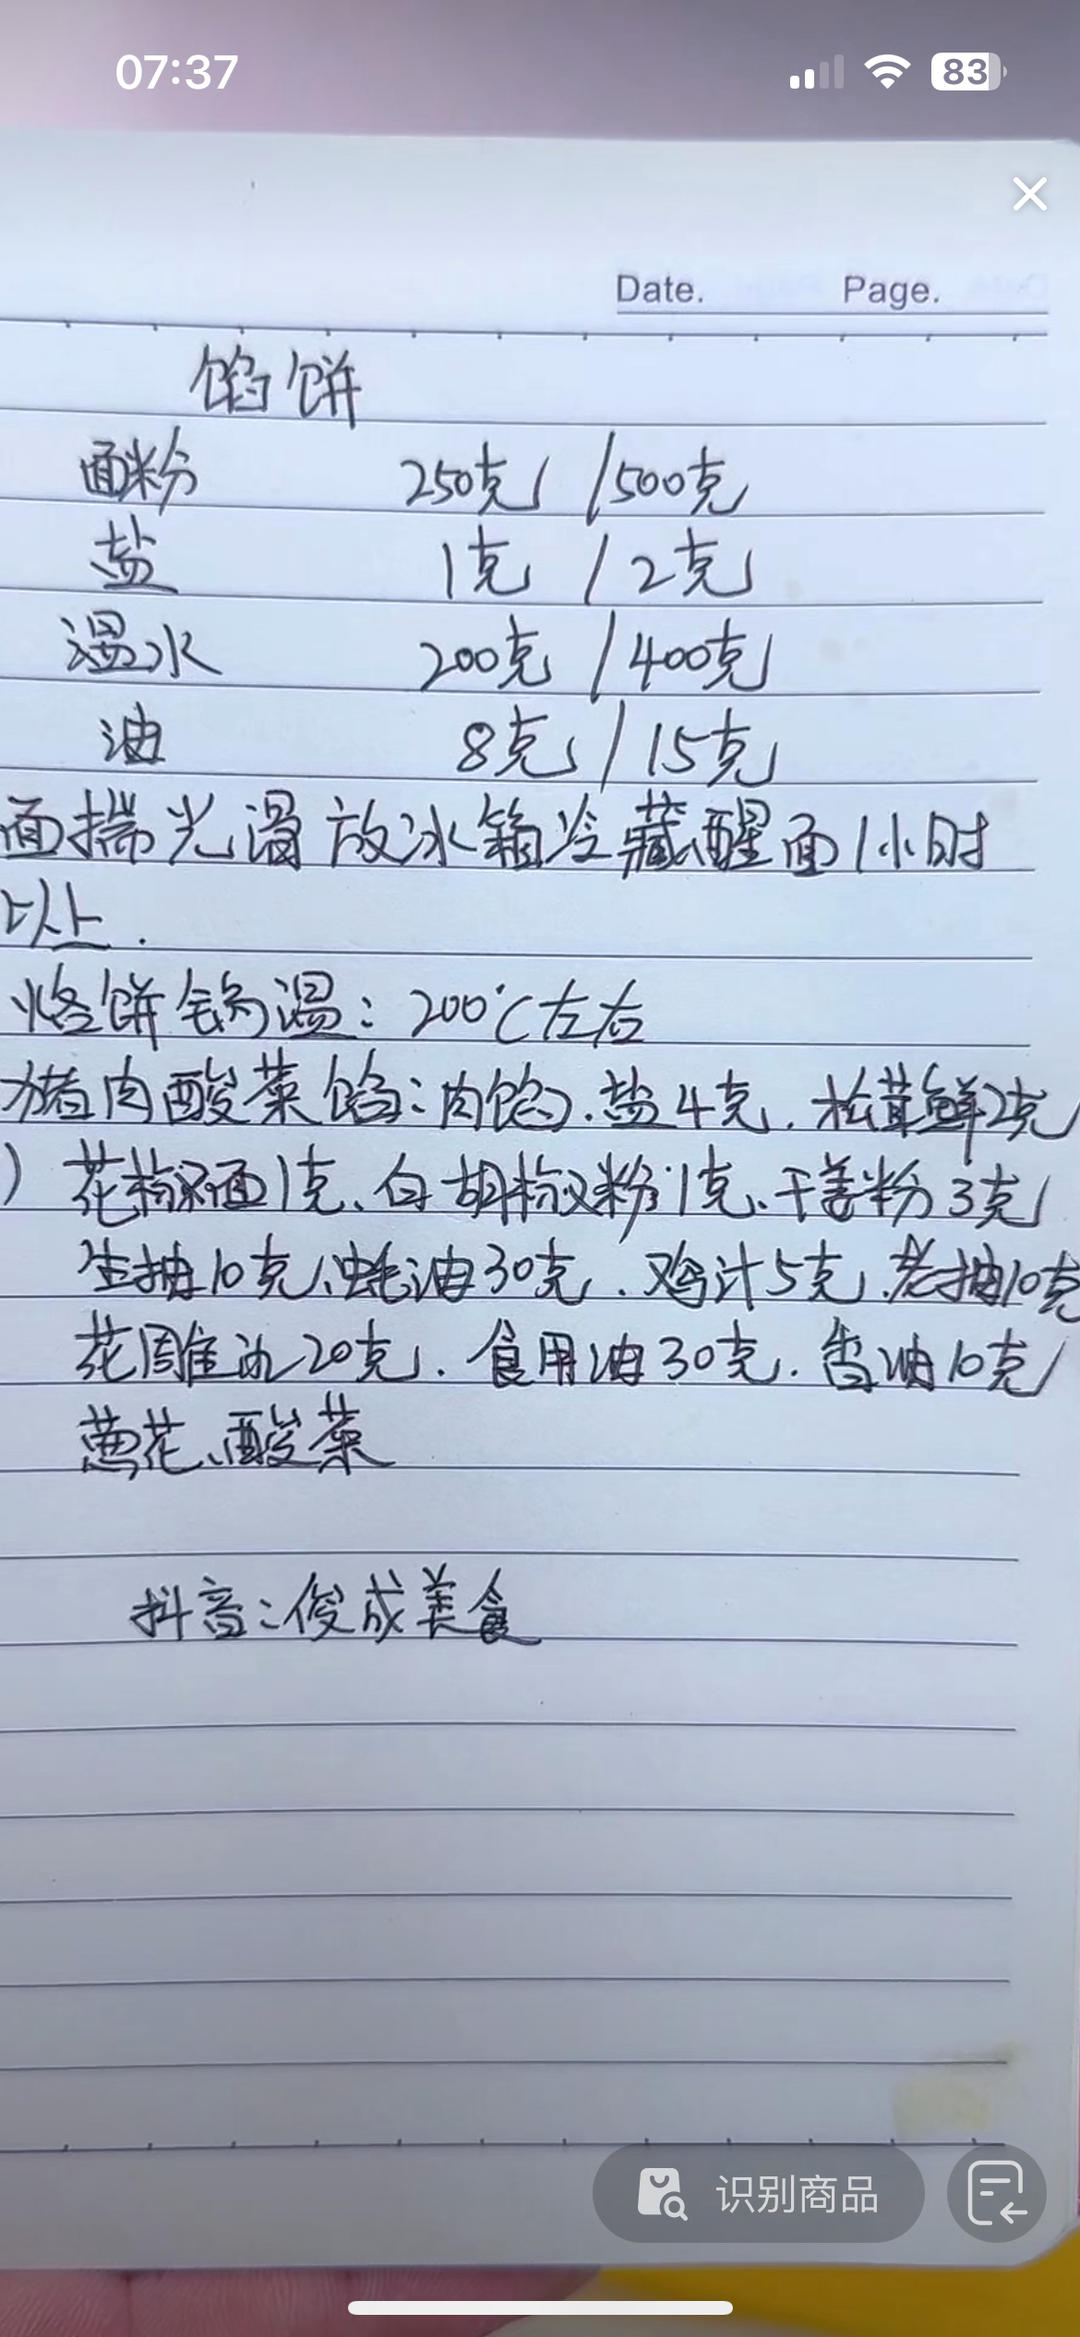 07:37
83
Date. Page.
馅饼
面粉 250克 /500克
盐 1克 / 2克
温水 200克 / 400克
油 8克 / 15克
面揣光滑放冰箱冷藏醒面1小时
以上.
烙饼锅温: 200℃左右
猪肉酸菜馅:肉馅).盐4克.松茸鲜2克
) 花椒面1克、白胡椒粉1克、干姜粉3克
生抽10克、蚝油30克.鸡汁5克.老抽10克
花雕酒20克.食用油30克.香油10克
葱花、酸菜
抖音:俊成美食
识别商品